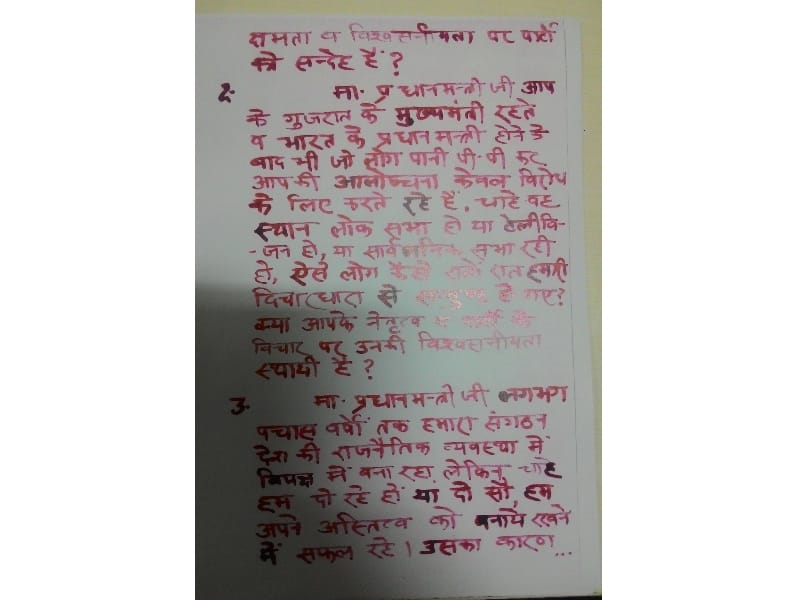 क्षमता व विश्वसनीयता पर पार्टी
को सन्देह हैं?
2. मा. प्रधानमन्त्री जी आप
के गुजरात के मुख्यमंत्री रहते
व भारत के प्रधानमन्त्री होने के
बाद भी जो लोग पानी पी-पी कर
आपकी आलोच्चना केवल विरोध
के लिए करते रहे हैं. चाहे वह
स्थान लोक सभा हो या टेलीवि-
-जन हो, या सार्वजनिक सभा रही
हो, ऐसे लोग कैसे रातो रात हमारी
विचारधारा से हो गए?
क्या आपके नेतृत्व व पार्टी के
विचार पर उनकी विश्वसनीयता
स्थायी है?
3. मा. प्रधानमन्त्री जी लगभग
पचास वर्षों तक हमारा संगठन
देश की राजनैतिक व्यवस्था में
विपक्ष में बना रहा. लेकिन चाहे
हम दो रहे हों या दो सौ, हम
अपने अस्तित्व को बनाये रखने
में सफल रहे। उसका कारण...